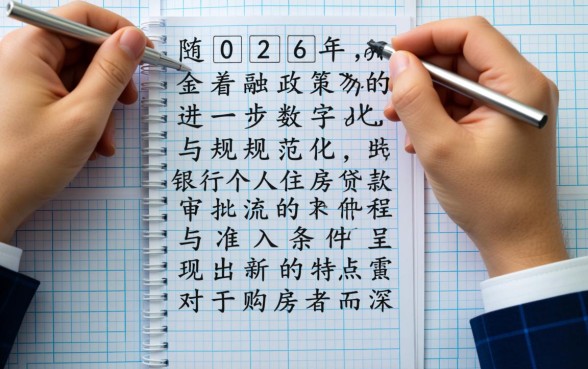 随026年，
金着融政策的
进一步数字
与规规范化，
银行个人住房贷款
审批流的 程
与准入条件呈
现出新的特点
对于购房者而深